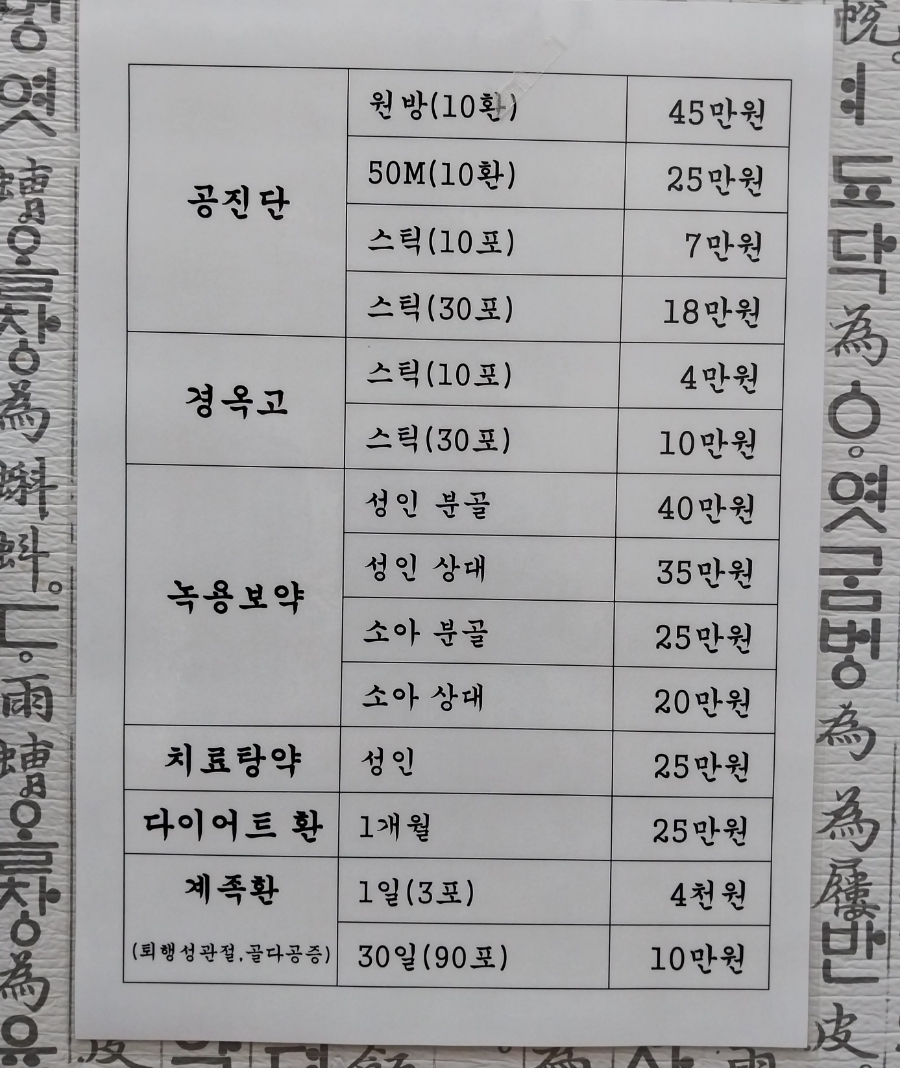 공진단
원방(10환) 45만원
50M(10환) 25만원
스틱(10포) 7만원
스틱(30포) 18만원
경옥고
스틱(10포) 4만원
스틱(30포) 10만원
녹용보약
성인 분골 40만원
성인 상대 35만원
소아 분골 25만원
소아 상대 20만원
치료탕약 성인 25만원
다이어트 환 1개월 25만원
계족환
(퇴행성관절,골다공증)
1일(3포) 4천원
30일(90포) 10만원